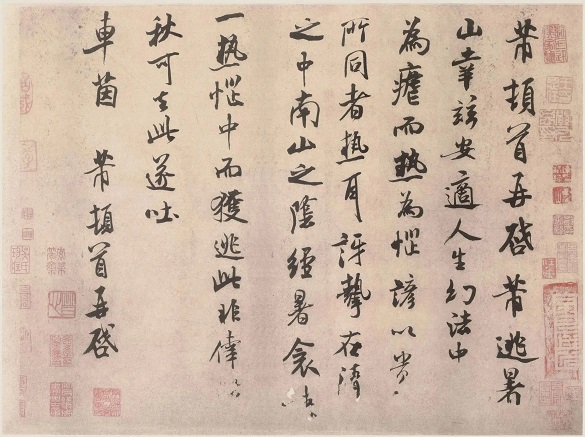 芾頓首再啓芾逃暑
山幸茲安適人生幻法中
為瘧而熱為惱諺以貴
所同者熱耳訝挈在清
之中南山之陰經暑衾
一熱惱中而獲逃此非
秋可去此遂吐
車茵 芾頓首再啓